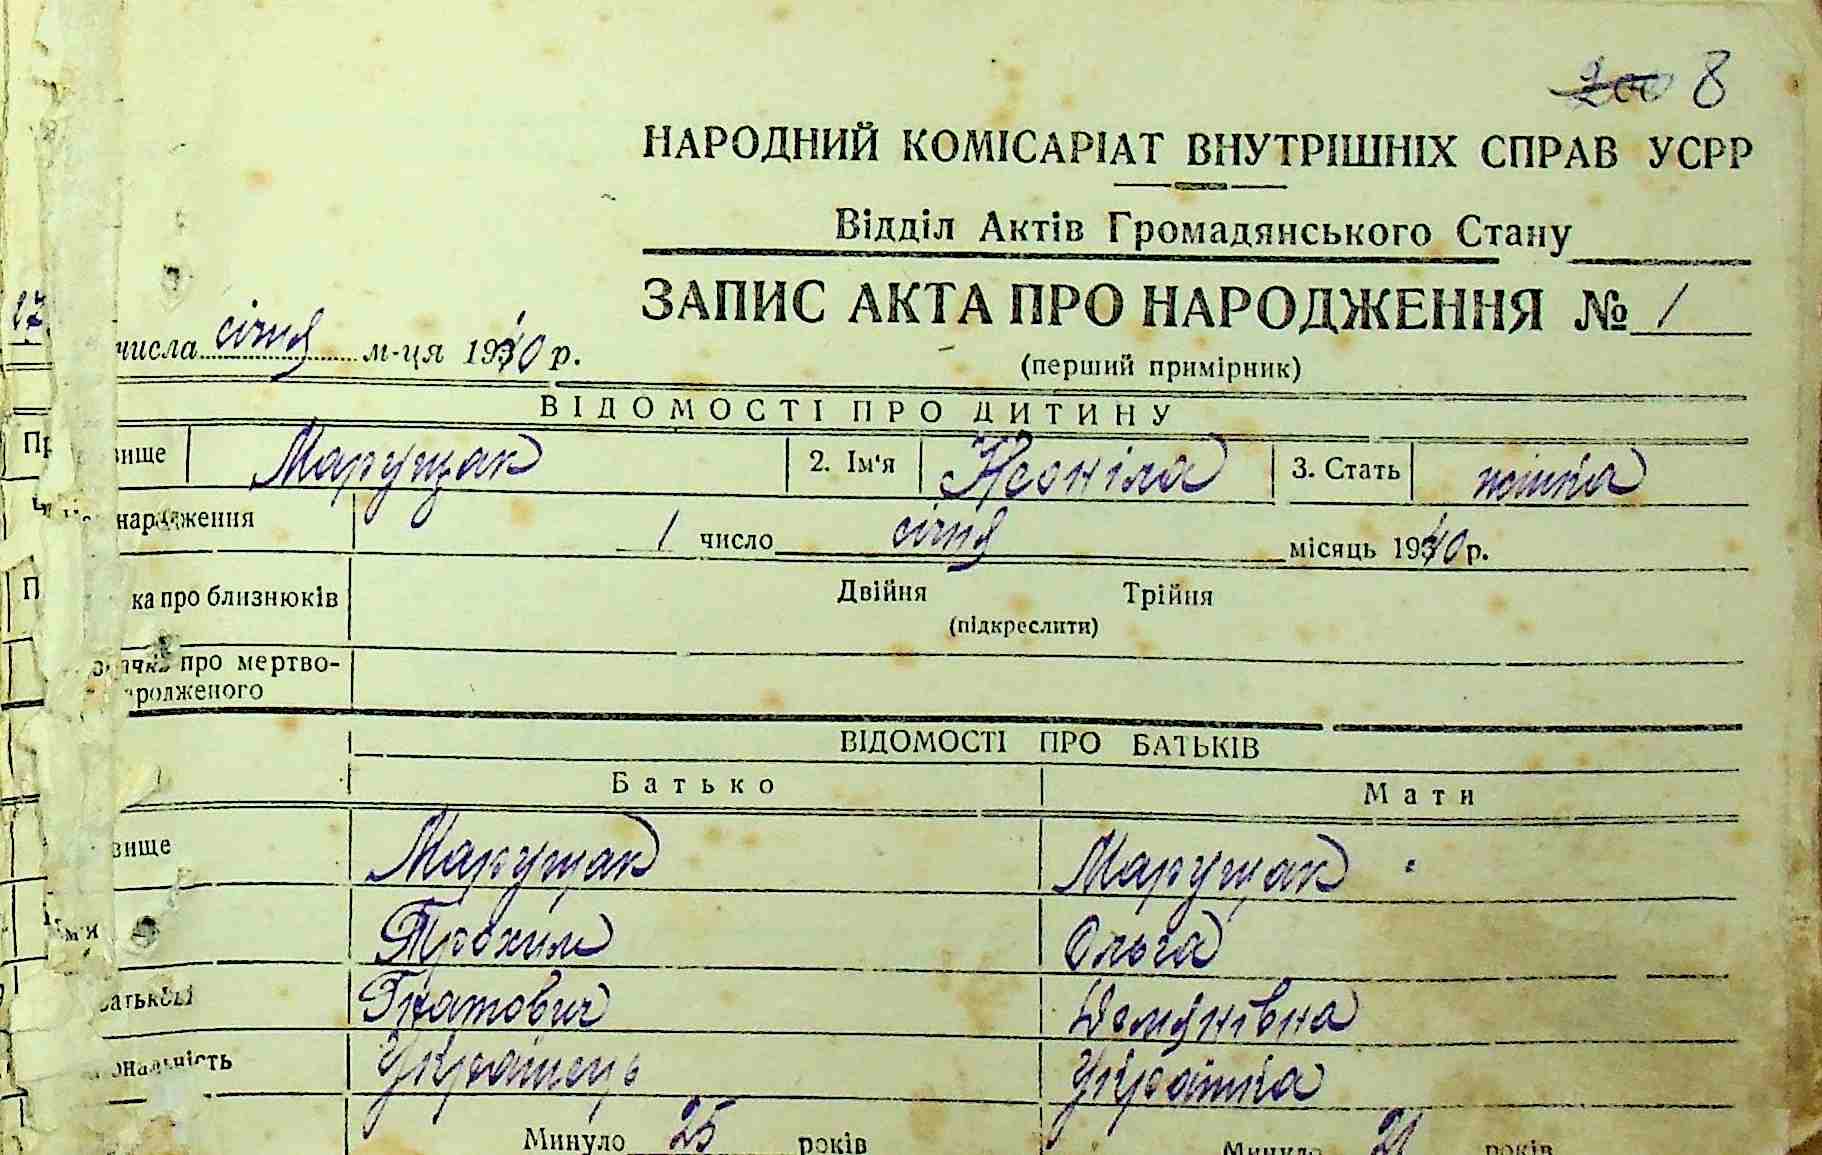 8
НАРОДНИЙ КОМІСАРІАТ ВНУТРІШНІХ СПРАВ УСРР
Відділ Актів Громадянського Стану
17 числа січня м-ця 1940 р.
ЗАПИС АКТА ПРО НАРОДЖЕННЯ № 1
(перший примірник)
ВІДОМОСТІ ПРО ДИТИНУ
Марущак 2. Ім'я Неоніла 3. Стать жінка
народження 1 число січня місяць 1940 р.
ка про близнюків Двійня Трійня
(підкреслити)
про мертво-
народженого
ВІДОМОСТІ ПРО БАТЬКІВ
Батько Мати
Марущак Марущак
Ім'я Трохим Ольга
батькові Гнатович Демянівна
Українець Українка
Минуло 25 років Минуло 21 років